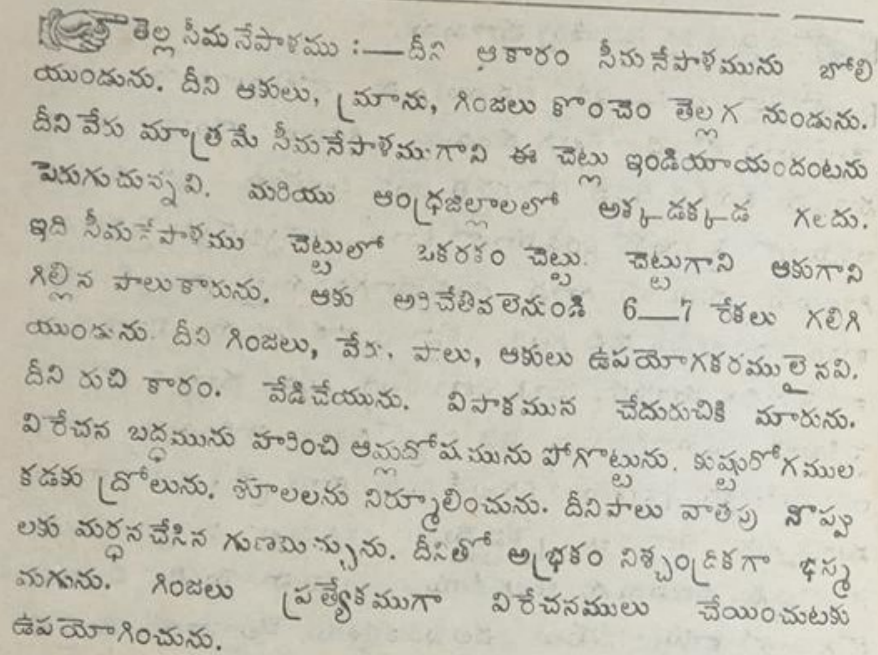 తెల్ల సీమ నేపాళము :— దీని ఆకారం సీమ నేపాళమును బోలి
యుండును. దీని ఆకులు, మ్రాను, గింజలు కొంచెం తెల్లగ నుండును.
దీని వేరు మాత్రమే సీమనేపాళముగాని ఈ చెట్లు ఇండియాయందంటను
పెరుగుచున్నవి. మరియు ఆంధ్రజిల్లాలలో అక్కడక్కడ గలదు.
ఇది సీమనేపాళము చెట్టులో ఒకరకం చెట్టు. చెట్టుగాని ఆకుగాని
గిల్లిన పాలుకారును. ఆకు అరిచేతివలెనుండి 6—7 రేకలు గలిగి
యుండును. దీని గింజలు, వేరు, పాలు, ఆకులు ఉపయోగకరములైనవి.
దీని రుచి కారం. వేడిచేయును. విపాకమున చేదురుచికి మారును.
విరేచన బద్ధమును హరించి ఆమ్లదోషమును పోగొట్టును. కుష్టురోగముల
కడకు ద్రోలును. శూలలను నిర్మూలించును. దీనిపాలు వాతపు నొప్పు
లకు మర్ధన చేసిన గుణమిచ్చును. దీనితో అభ్రకం నిశ్చంద్రికగా భస్మ
మగును. గింజలు ప్రత్యేకముగా విరేచనములు చేయించుటకు
ఉపయోగించును.